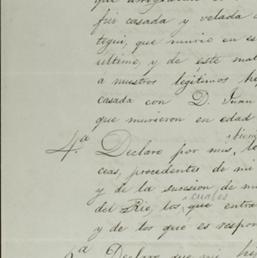 que
fui casada y velada
tegui, que murió en es
ultimo, y de este mat
a nuestros legitimos he
casada con D. Juan
que murieron en edad
bien
4.ª Declaro por mis
ceas, procedentes de mi
y de la sucesion de mi
cuales
del Rio, los que entra
y de los que es respon
Declaro que mi hij